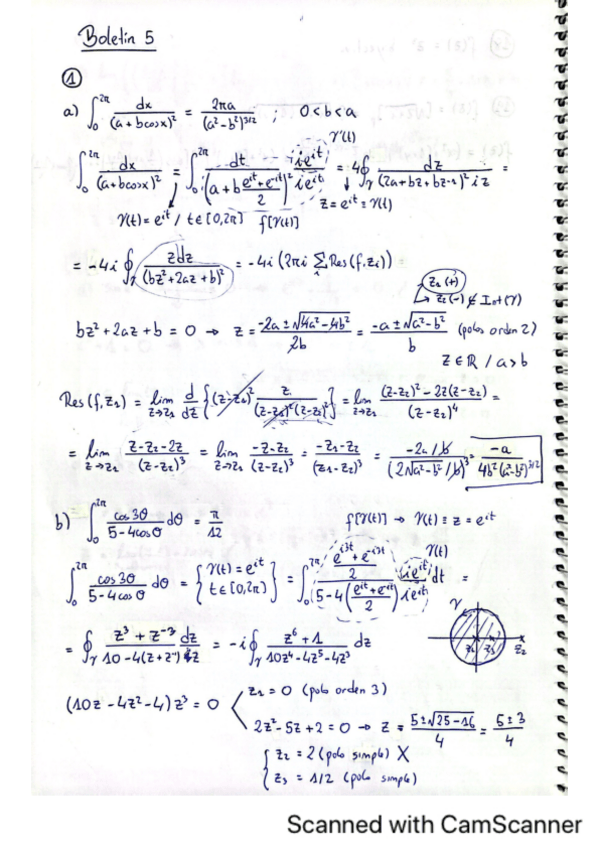 Boletín 5
①
a) ∫₀^{2π} dx/(a+bcosx)² = 2πa/(a²-b²)^{3/2} ; 0<b<a
γ(t)
∫₀^{2π} dx/(a+bcosx)² = ∫₀^{2π} dt/(a+b (e^{it}+e^{-it})/2)² ie^{it}/ie^{it} = 4∮_γ dz/(2a+bz+bz^{-1})² iz =
γ(t)=e^{it} / t∈[0,2π] f[γ(t)] z=e^{it}≡γ(t)
= -4i ∮_γ zdz/(bz²+2az+b)² = -4i (2πi Σ_i Res(f,z_i))
z₁(+)
z₂(-) ∉ Int(γ)
bz²+2az+b = 0 → z = (-2a±√(4a²-4b²))/2b = (-a±√(a²-b²))/b (polos orden 2)
z∈ℝ / a>b
Res(f,z₁) = lim_{z→z₁} d/dz {(z-z₁)² z/((z-z₁)²(z-z₂)²)} = lim_{z→z₁} ((z-z₂)²-2z(z-z₂))/(z-z₂)⁴ =
= lim_{z→z₁} (z-z₂-2z)/(z-z₂)³ = lim_{z→z₁} (-z-z₂)/(z-z₂)³ = (-z₁-z₂)/(z₁-z₂)³ = (-2a/b)/(2√(a²-b²)/b)³ = -a/4b²(a²-b²)^{3/2}
b) ∫₀^{2π} cos3θ/(5-4cosθ) dθ = π/12 f[γ(t)] → γ(t) ≡ z = e^{it}
γ(t)
∫₀^{2π} cos3θ/(5-4cosθ) dθ = { γ(t)=e^{it} t∈[0,2π) } = ∫₀^{2π} ((e^{i3t}+e^{-i3t})/2)/(5-4((e^{it}+e^{-it})/2)) ie^{it}/ie^{it} dt =
= ∮_γ (z³+z^{-3})/(10-4(z+z^{-1})) dz/iz = -i∮_γ (z⁶+1)/(10z⁴-4z⁵-4z³) dz
γ z₁ z₃ z₂
(10z-4z²-4)z³ = 0
z₁ = 0 (polo orden 3)
2z²-5z+2 = 0 → z = (5±√(25-16))/4 = (5±3)/4
z₂ = 2 (polo simple) X
z₃ = 1/2 (polo simple)
Scanned with CamScanner